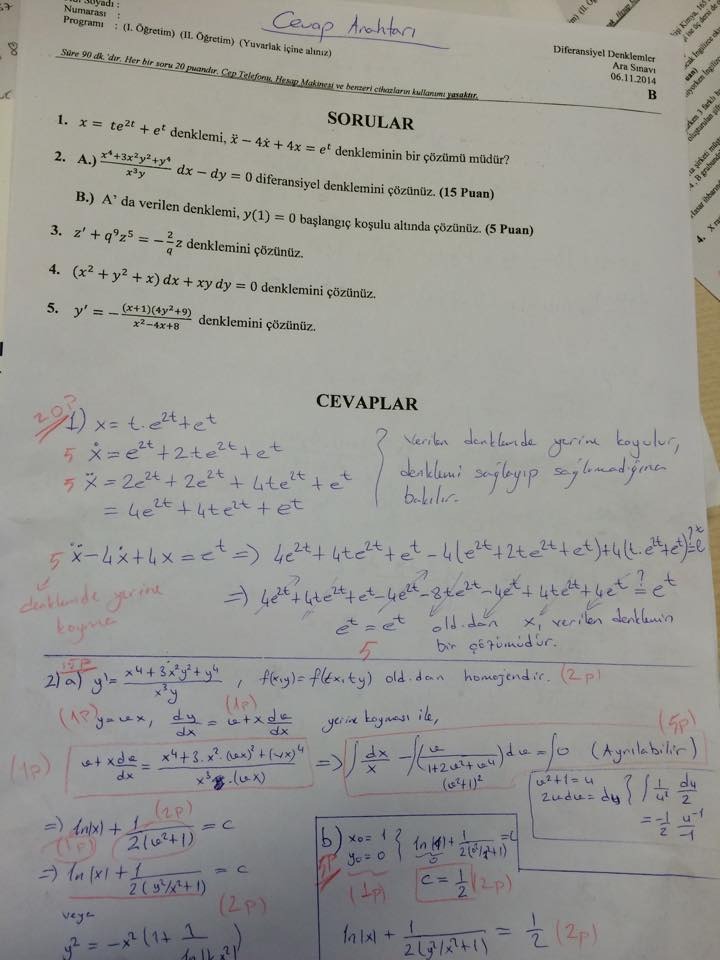 Cevap Anahtarı
Soyadı :
Numarası :
Programı : (I. Öğretim) (II. Öğretim) (Yuvarlak içine alınız)
Diferansiyel Denklemler
Ara Sınavı
06.11.2014
B
Süre 90 dk.'dır. Her bir soru 20 puandır. Cep Telefonu, Hesap Makinesi ve benzeri cihazların kullanımı yasaktır.
SORULAR
1. x = te^{2t} + e^t denklemi, ẍ − 4ẋ + 4x = e^t denkleminin bir çözümü müdür?
2. A.) (x^4+3x^2y^2+y^4)/(x^3y) dx − dy = 0 diferansiyel denklemini çözünüz. (15 Puan)
B.) A' da verilen denklemi, y(1) = 0 başlangıç koşulu altında çözünüz. (5 Puan)
3. z' + q^9z^5 = −(2/q)z denklemini çözünüz.
4. (x^2 + y^2 + x) dx + xy dy = 0 denklemini çözünüz.
5. y' = −((x+1)(4y^2+9))/(x^2−4x+8) denklemini çözünüz.
CEVAPLAR
20P
1) x = t.e^{2t}+e^t
5 ẋ = e^{2t}+2te^{2t}+e^t
5 ẍ = 2e^{2t}+2e^{2t}+4te^{2t}+e^t
= 4e^{2t}+4te^{2t}+e^t
Verilen denklemde yerine koyulur,
denklemi sağlayıp sağlamadığına
bakılır.
5 ẍ−4ẋ+4x = e^t => 4e^{2t}+4te^{2t}+e^t−4(e^{2t}+2te^{2t}+e^t)+4(t.e^{2t}+e^t) ?= e^t
denklemde yerine
koyma
=> 4e^{2t}+4te^{2t}+e^t−4e^{2t}−8te^{2t}−4e^t+4te^{2t}+4e^t ?= e^t
e^t = e^t old.dan x, verilen denklemin
bir çözümüdür.
5
15P
2) a) y' = (x^4+3x^2y^2+y^4)/(x^3y) , f(x,y) = f(tx,ty) old.dan homojendir. (2p)
(1p) y=vx, dy/dx = v+x dv/dx (1p) yerine koyması ile,
(1p) v+x dv/dx = (x^4+3.x^2.(vx)^2+(vx)^4)/(x^3.(vx)) => ∫ dx/x − ∫ (v/(1+2v^2+v^4)) dv = ∫0 (Ayrılabilir) (5p)
(v^2+1)^2
v^2+1=u
2vdv=du } ∫ 1/u^2 du/2
= −1/2 u^{-1}/-1
=> ln|x| + 1/(2(v^2+1)) = c
(1p) (2p)
=> ln|x| + 1/(2(y^2/x^2+1)) = c
(2p)
veya
y^2 = −x^2 (1+ 1/
5p
b) x0=1
y0=0 { ln|1| + 1/(2(0^2/1^2+1)) = c
0
(1p) c = 1/2 (2p)
ln|x| + 1/(2(y^2/x^2+1)) = 1/2 (2p)